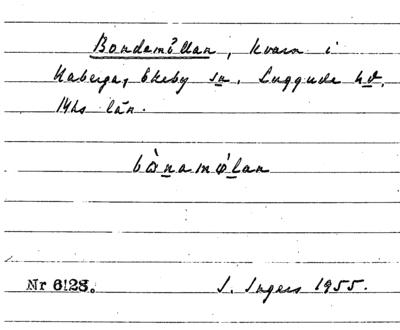 Bondamöllan, kvarn i
Kaberga, Ekeby sn. Luggude hd.
Mhs län.
bò̱namø̀lan
Nr 6128.
I. Ingers 1955.